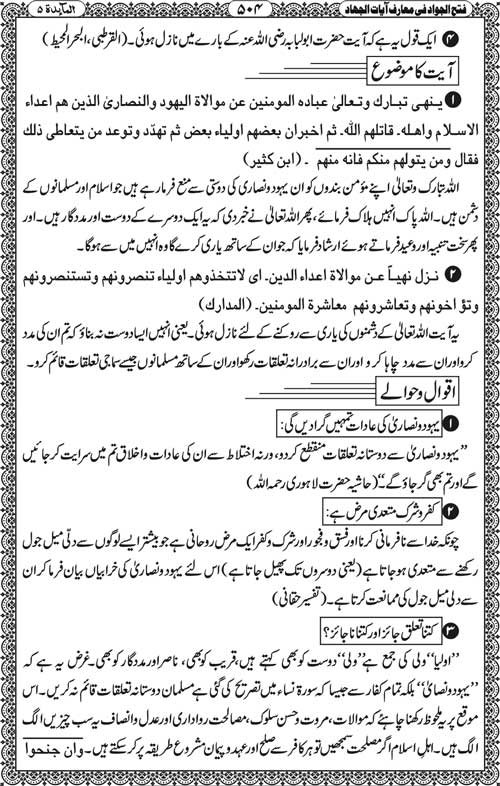 فتح الجواد فی معارف آیات الجهاد ۵۰۴ المآیدة ۵
۴ ایک قول یہ ہے کہ آیت حضرت ابولبابہ رضی اللہ عنہ کے بارے میں نازل ہوئی۔ (القرطبی، البحر المحیط)
آیت کا موضوع
۱ ینهی تبارك وتعالیٰ عباده المومنین عن موالاة الیهود والنصاریٰ الذین هم اعداء
الاسلام واهله۔ قاتلهم الله۔ ثم اخبران بعضهم اولیاء بعض ثم تهدّد وتوعد من یتعاطی ذلك
فقال ومن یتولهم منکم فانه منهم ۔ (ابن کثیر)
اللہ تبارک وتعالیٰ اپنے مؤمن بندوں کو ان یہود ونصاریٰ کی دوستی سے منع فرما رہے ہیں جو اسلام اور مسلمانوں کے
دشمن ہیں۔ اللہ پاک انہیں ہلاک فرمائے، پھر اللہ تعالیٰ نے خبر دی کہ یہ ایک دوسرے کے دوست اور مددگار ہیں۔ اور
پھر سخت تنبیہ اور وعید فرماتے ہوئے ارشاد فرمایا کہ جو ان کے ساتھ یاری کرے گا وہ انہیں میں سے ہوگا۔
۲ نزل نهیاً عن موالاة اعداء الدین۔ ای لاتتخذوهم اولیاء تنصرونهم وتستنصرونهم
وتؤ اخونهم وتعاشرونهم معاشرة المومنین۔ (المدارك)
یہ آیت اللہ تعالیٰ کے دشمنوں کی یاری سے روکنے کے لئے نازل ہوئی۔ یعنی انہیں ایسا دوست نہ بناؤ کہ تم ان کی مدد
کرو اور ان سے مدد چاہا کرو اور ان سے برادرانہ تعلقات رکھو اور ان کے ساتھ مسلمانوں جیسے سماجی تعلقات قائم کرو۔
اقوال وحوالے
۱ یہود ونصاریٰ کی عادات تمہیں گرا دیں گی:
”یہود ونصاریٰ سے دوستانہ تعلقات منقطع کردو، ورنہ اختلاط سے ان کی عادات واخلاق تم میں سرایت کر جائیں
گے اور تم بھی گر جاؤ گے۔“ (حاشیہ حضرت لاہوری رحمہ اللہ)
۲ کفر وشرک متعدی مرض ہے:
چونکہ خدا سے نافرمانی کرنا اور فسق وفجور اور شرک وکفر ایک مرض روحانی ہے جو بیشتر ایسے لوگوں سے دلی میل جول
رکھنے سے متعدی ہوجاتا ہے (یعنی دوسروں تک پھیل جاتا ہے) اس لئے یہود ونصاریٰ کی خرابیاں بیان فرما کر ان
سے دلی میل جول کی ممانعت کرتا ہے۔ (تفسیر حقانی)
۳ کتنا تعلق جائز اور کتنا ناجائز؟
”اولیا“ ولی کی جمع ہے ”ولی“ دوست کو بھی کہتے ہیں، قریب کو بھی، ناصر اور مددگار کو بھی۔ غرض یہ ہے کہ
”یہود ونصاریٰ“ بلکہ تمام کفار سے جیسا کہ سورۃ نساء میں تصریح کی گئی ہے مسلمان دوستانہ تعلقات قائم نہ کریں۔ اس
موقع پر یہ ملحوظ رکھنا چاہئے کہ موالات، مروت وحسن سلوک، مصالحت رواداری اور عدل وانصاف یہ سب چیزیں الگ
الگ ہیں۔ اہل اسلام اگر مصلحت سمجھیں تو ہر کافر سے صلح اور عہد وپیمان مشروع طریقہ پر کرسکتے ہیں۔ وان جنحوا